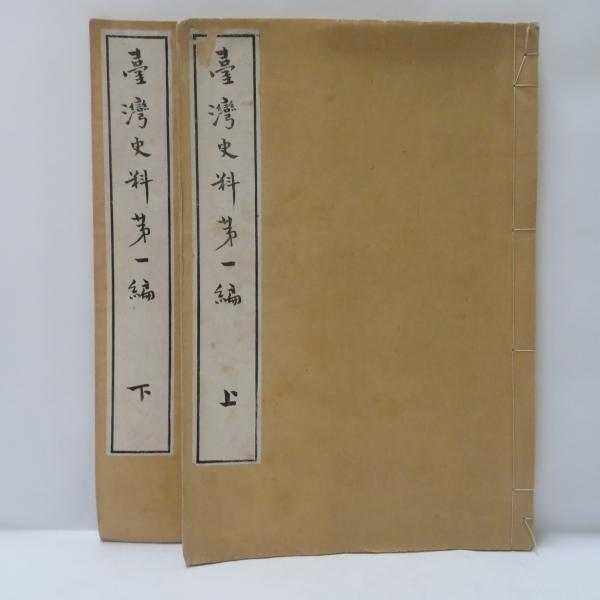 臺灣史料第一編 上
臺灣史料第一編 下